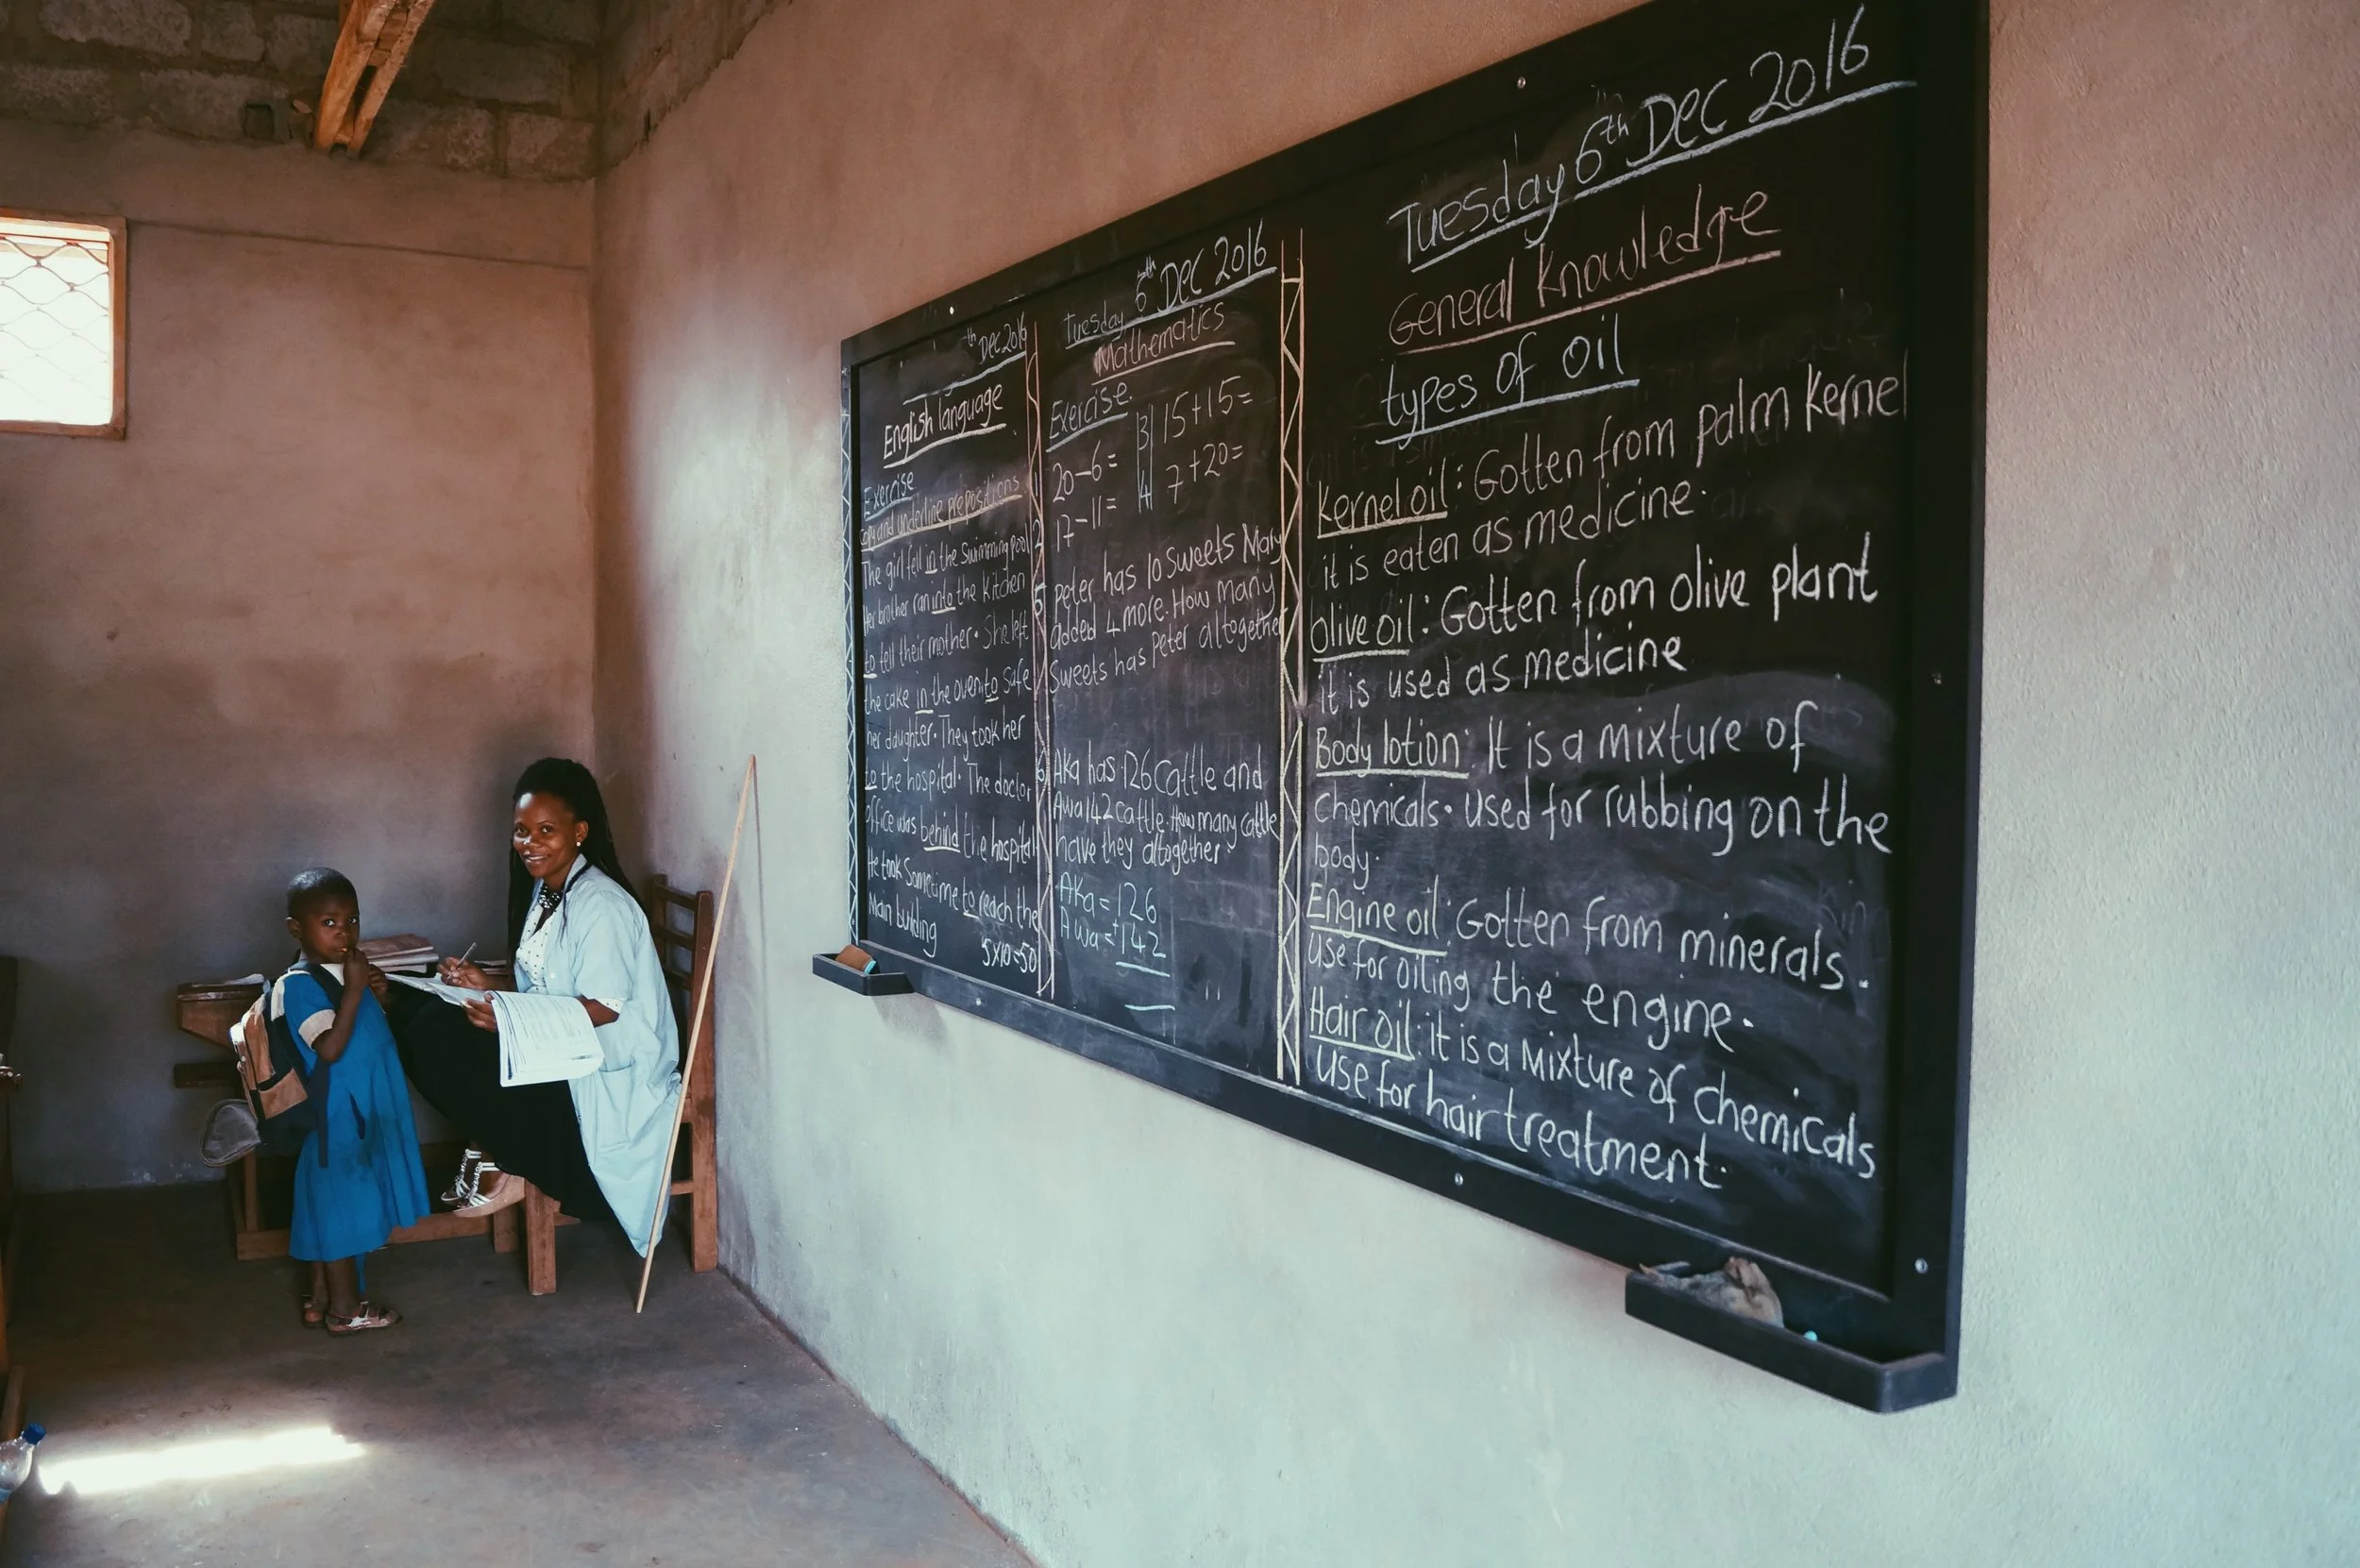 th Dec 2016
English language
Exercise
Copy and underline prepositions
The girl fell in the Swimming pool
Her brother ran into the Kitchen
to tell their mother. She left
the cake in the oven to safe
her daughter. They took her
to the hospital. The doctor
office was behind the hospital
He took Sometime to reach the
Main building
5x10=50
Tuesday 6th Dec 2016
Mathematics
Exercise.
20-6= 3 15+15=
2 17-11= 4 7+20=
5 Peter has 10 Sweets Mary
added 4 more. How many
Sweets has Peter altogether
6 Aka has 126 Cattle and
Awa 142 cattle How many cattle
have they altogether
AKa = 126
Awa = +142
Tuesday 6th Dec 2016
General Knowledge
types of oil
Kernel oil: Gotten from palm kernel
it is eaten as medicine.
Olive oil: Gotten from olive plant
it is used as medicine
Body lotion: It is a mixture of
chemicals. used for rubbing on the
body.
Engine oil: Gotten from minerals.
Use for oiling the engine.
Hair oil: it is a mixture of chemicals
Use for hair treatment.